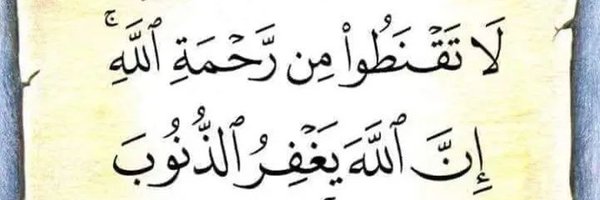 لَا تَقْنَطُوا۟ مِن رَّحْمَةِ ٱللَّهِ ۚ
إِنَّ ٱللَّهَ يَغْفِرُ ٱلذُّنُوبَ